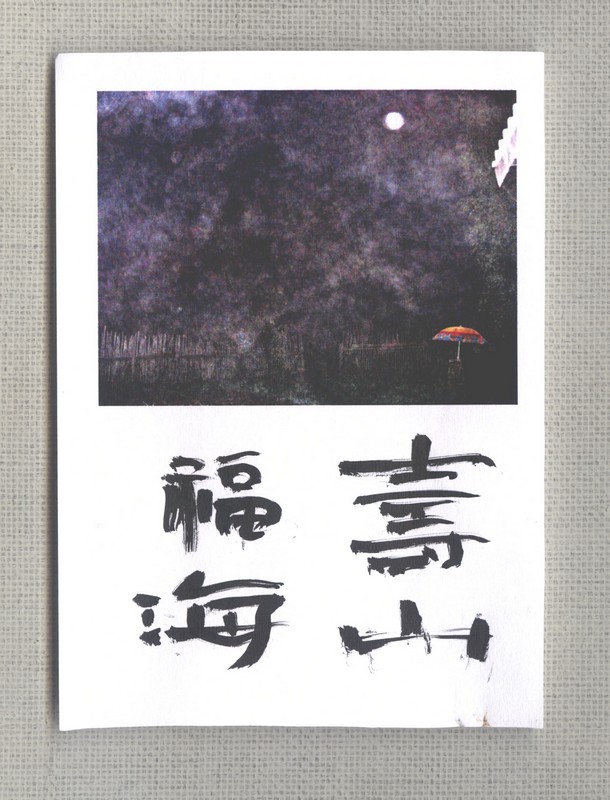 壽山
福海